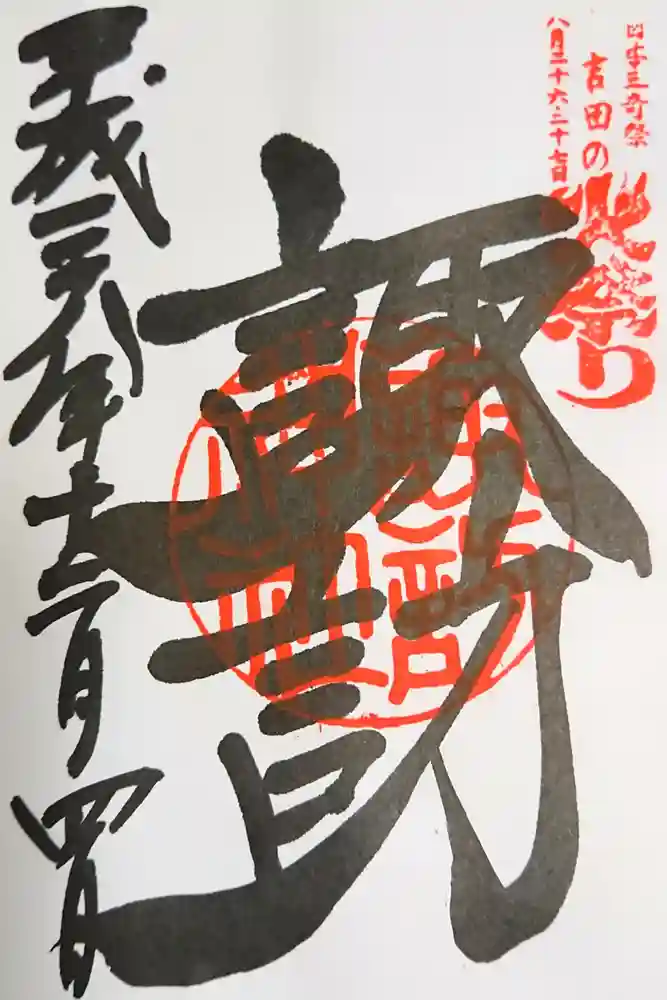 日本三奇祭
吉田の火祭り
八月二十六・二十七日
諏訪
諏訪
神社
平成二九年十二月四日